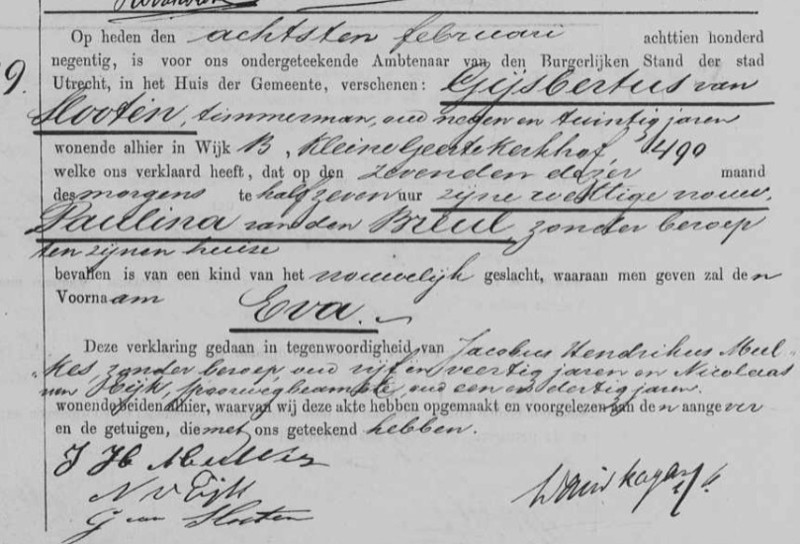 Op heden den achtsten februari achttien honderd
negentig, is voor ons ondergeteekende Ambtenaar van den Burgerlijken Stand der stad
9. Utrecht, in het Huis der Gemeente, verschenen: Gijsbertus van
Slooten, timmerman, oud negen en twintig jaren
wonende alhier in Wijk B, Kleine Geertekerkhof, 490
welke ons verklaard heeft, dat op den zevenden dezer maand
des morgens te half zeven uur zijne wettige vrouw,
Paulina van den Breul, zonder beroep
ten zijnen huize
bevallen is van een kind van het vrouwelijk geslacht, waaraan men geven zal den
Voornaam Eva.
Deze verklaring gedaan in tegenwoordigheid van Jacobus Hendrikus Meul
kes, zonder beroep oud vijf en veertig jaren en Nicolaas
van Eijk, spoorwegbeambte, oud een en dertig jaren.
wonende beiden alhier, waarvan wij deze akte hebben opgemaakt en voorgelezen aan den aangever
en de getuigen, die met ons geteekend hebben.
J H
N v Eijk
G van Slooten